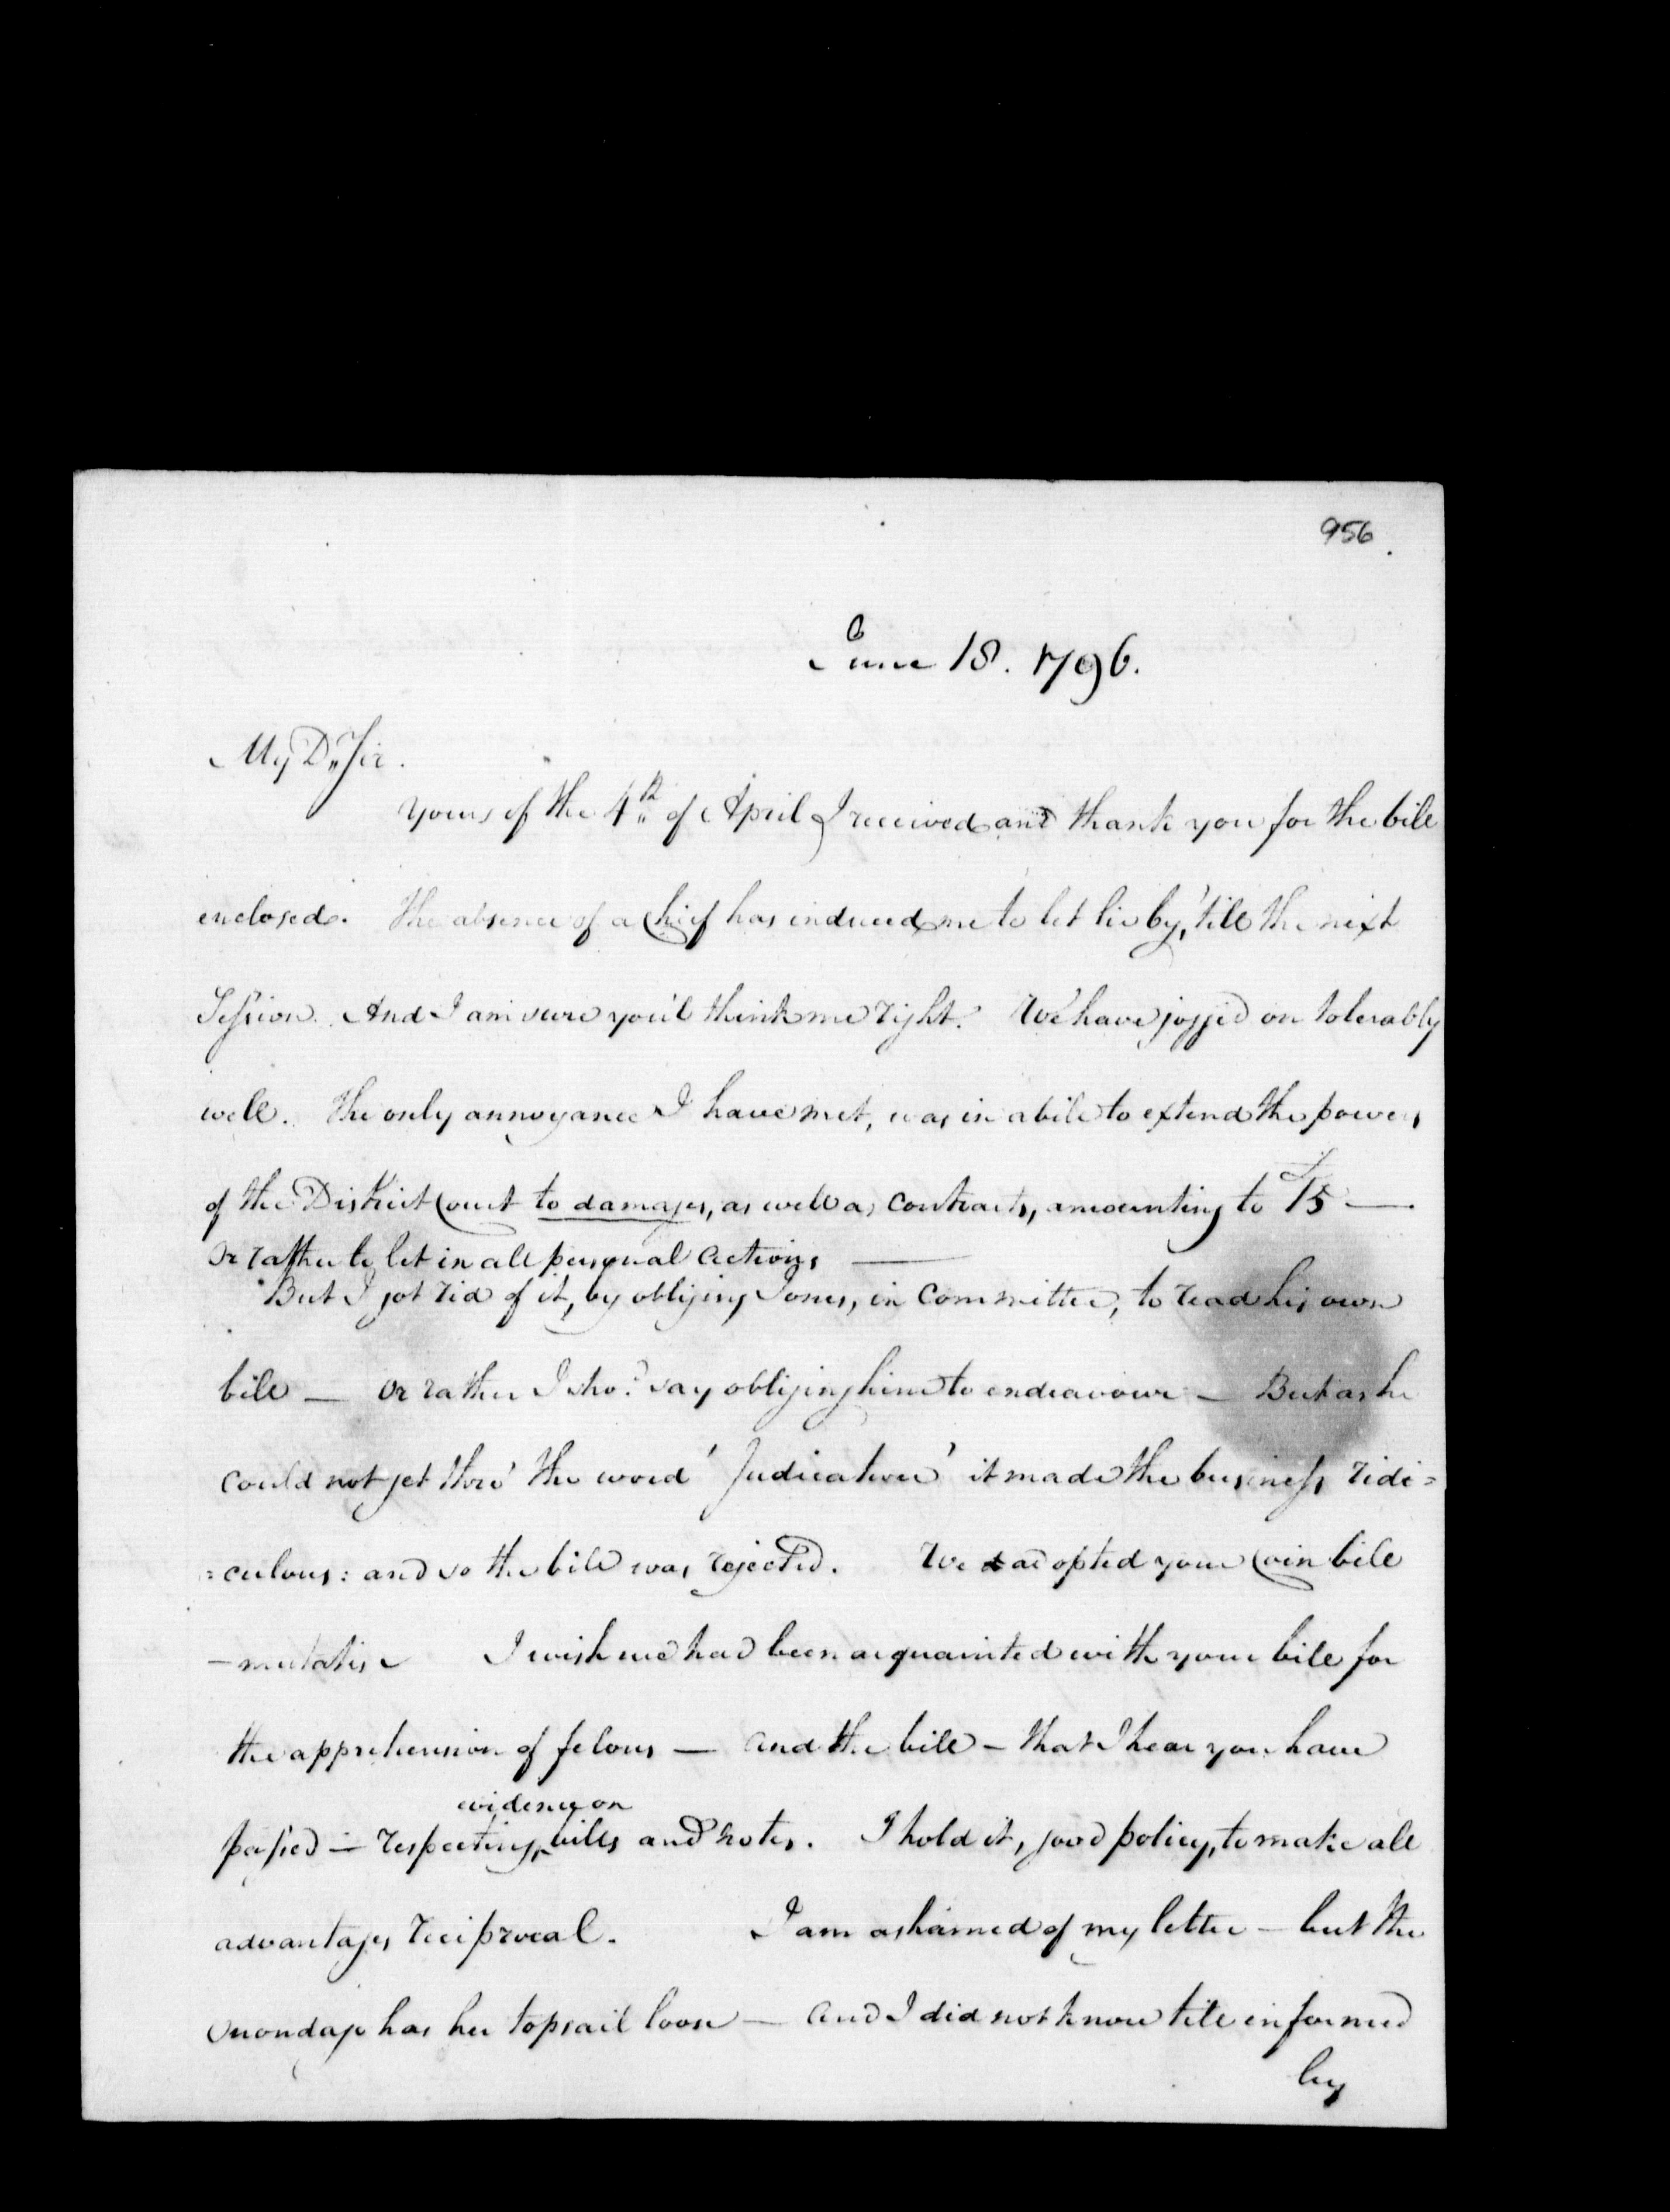 956
June 18. 1796.
My Dr Sir.
Yours of the 4th of April I received and thank you for the bill
enclosed. The absence of a Chief has induced me to let lie by, 'till the next
Session. And I am sure you'l think me right. We have jogg'd on tolerably
well. The only annoyance I have met, was in a bill to extend the powers
of the District Court to damages, as well as contracts, amounting to £15 —
Or rather to let in all personal actions —
But I got rid of it, by obliging Jones, in Committee, to read his own
bill — Or rather I shod say obliging him to endeavour — But as he
could not get thro' the word 'Judicature' it made the business ridi=
=culous: and so the bill was rejected. We adopted your Coin bill
— mutatis. I wish we had been acquainted with your bill for
the apprehension of felons — and the bill — that I hear you have
evidence on
passed — respecting, bills and notes. I hold it, good policy, to make all
advantages reciprocal. I am ashamed of my letter — but the
Onondago has her topsail loose — And I did not know till informed
by